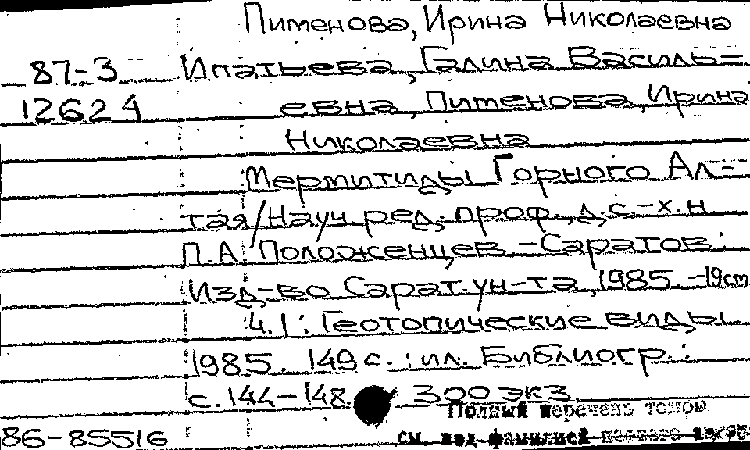 Пименова, Ирина Николаевна
87-3 Ипатьева, Галина Василь=
12624 евна, Пименова, Ирина
Николаевна
Термитиды Горного Ал=
тая/Науч ред. проф., д.с.-х.н
П.А. Положенцев.-Саратов:
Изд-во Сарат.ун-та, 1985.-19см
Ч.1: Геотопические виды
1985. 149 с.: ил. Библиогр.:
с.144-148. 300 экз
Полный перечень томов
86-85516 см. под фамилией первого автора